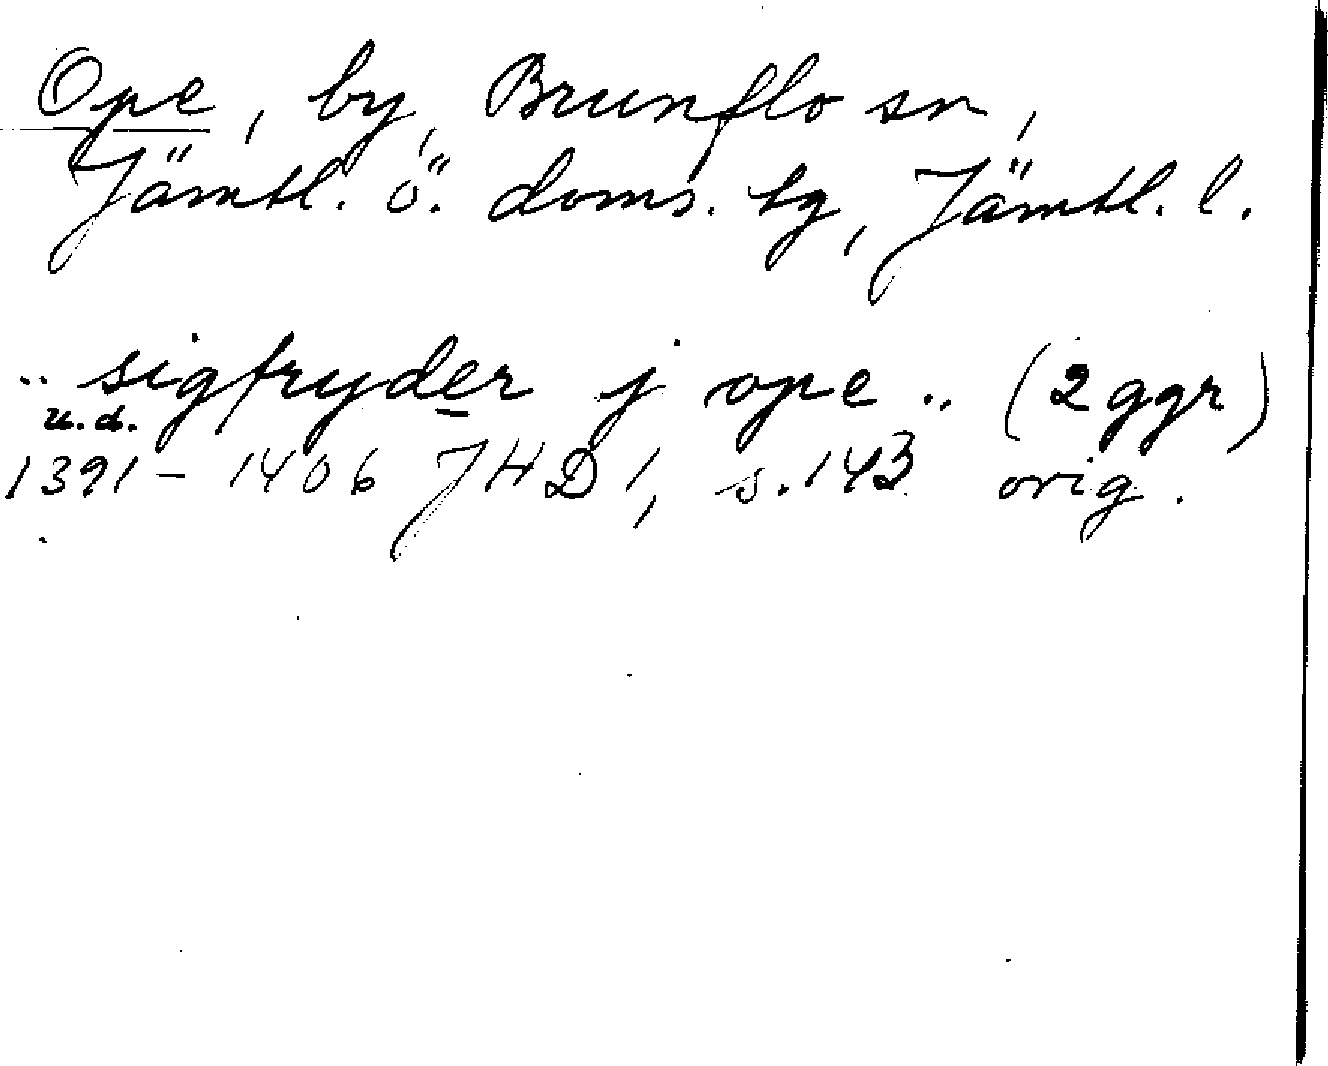 Ope, by, Brunflo sn,
Jämtl. ö. doms. tg, Jämtl. l.
.. sigfryder j ope .. (2 ggr)
u.d.
1391 - 1406 JHD 1, s. 143 orig.